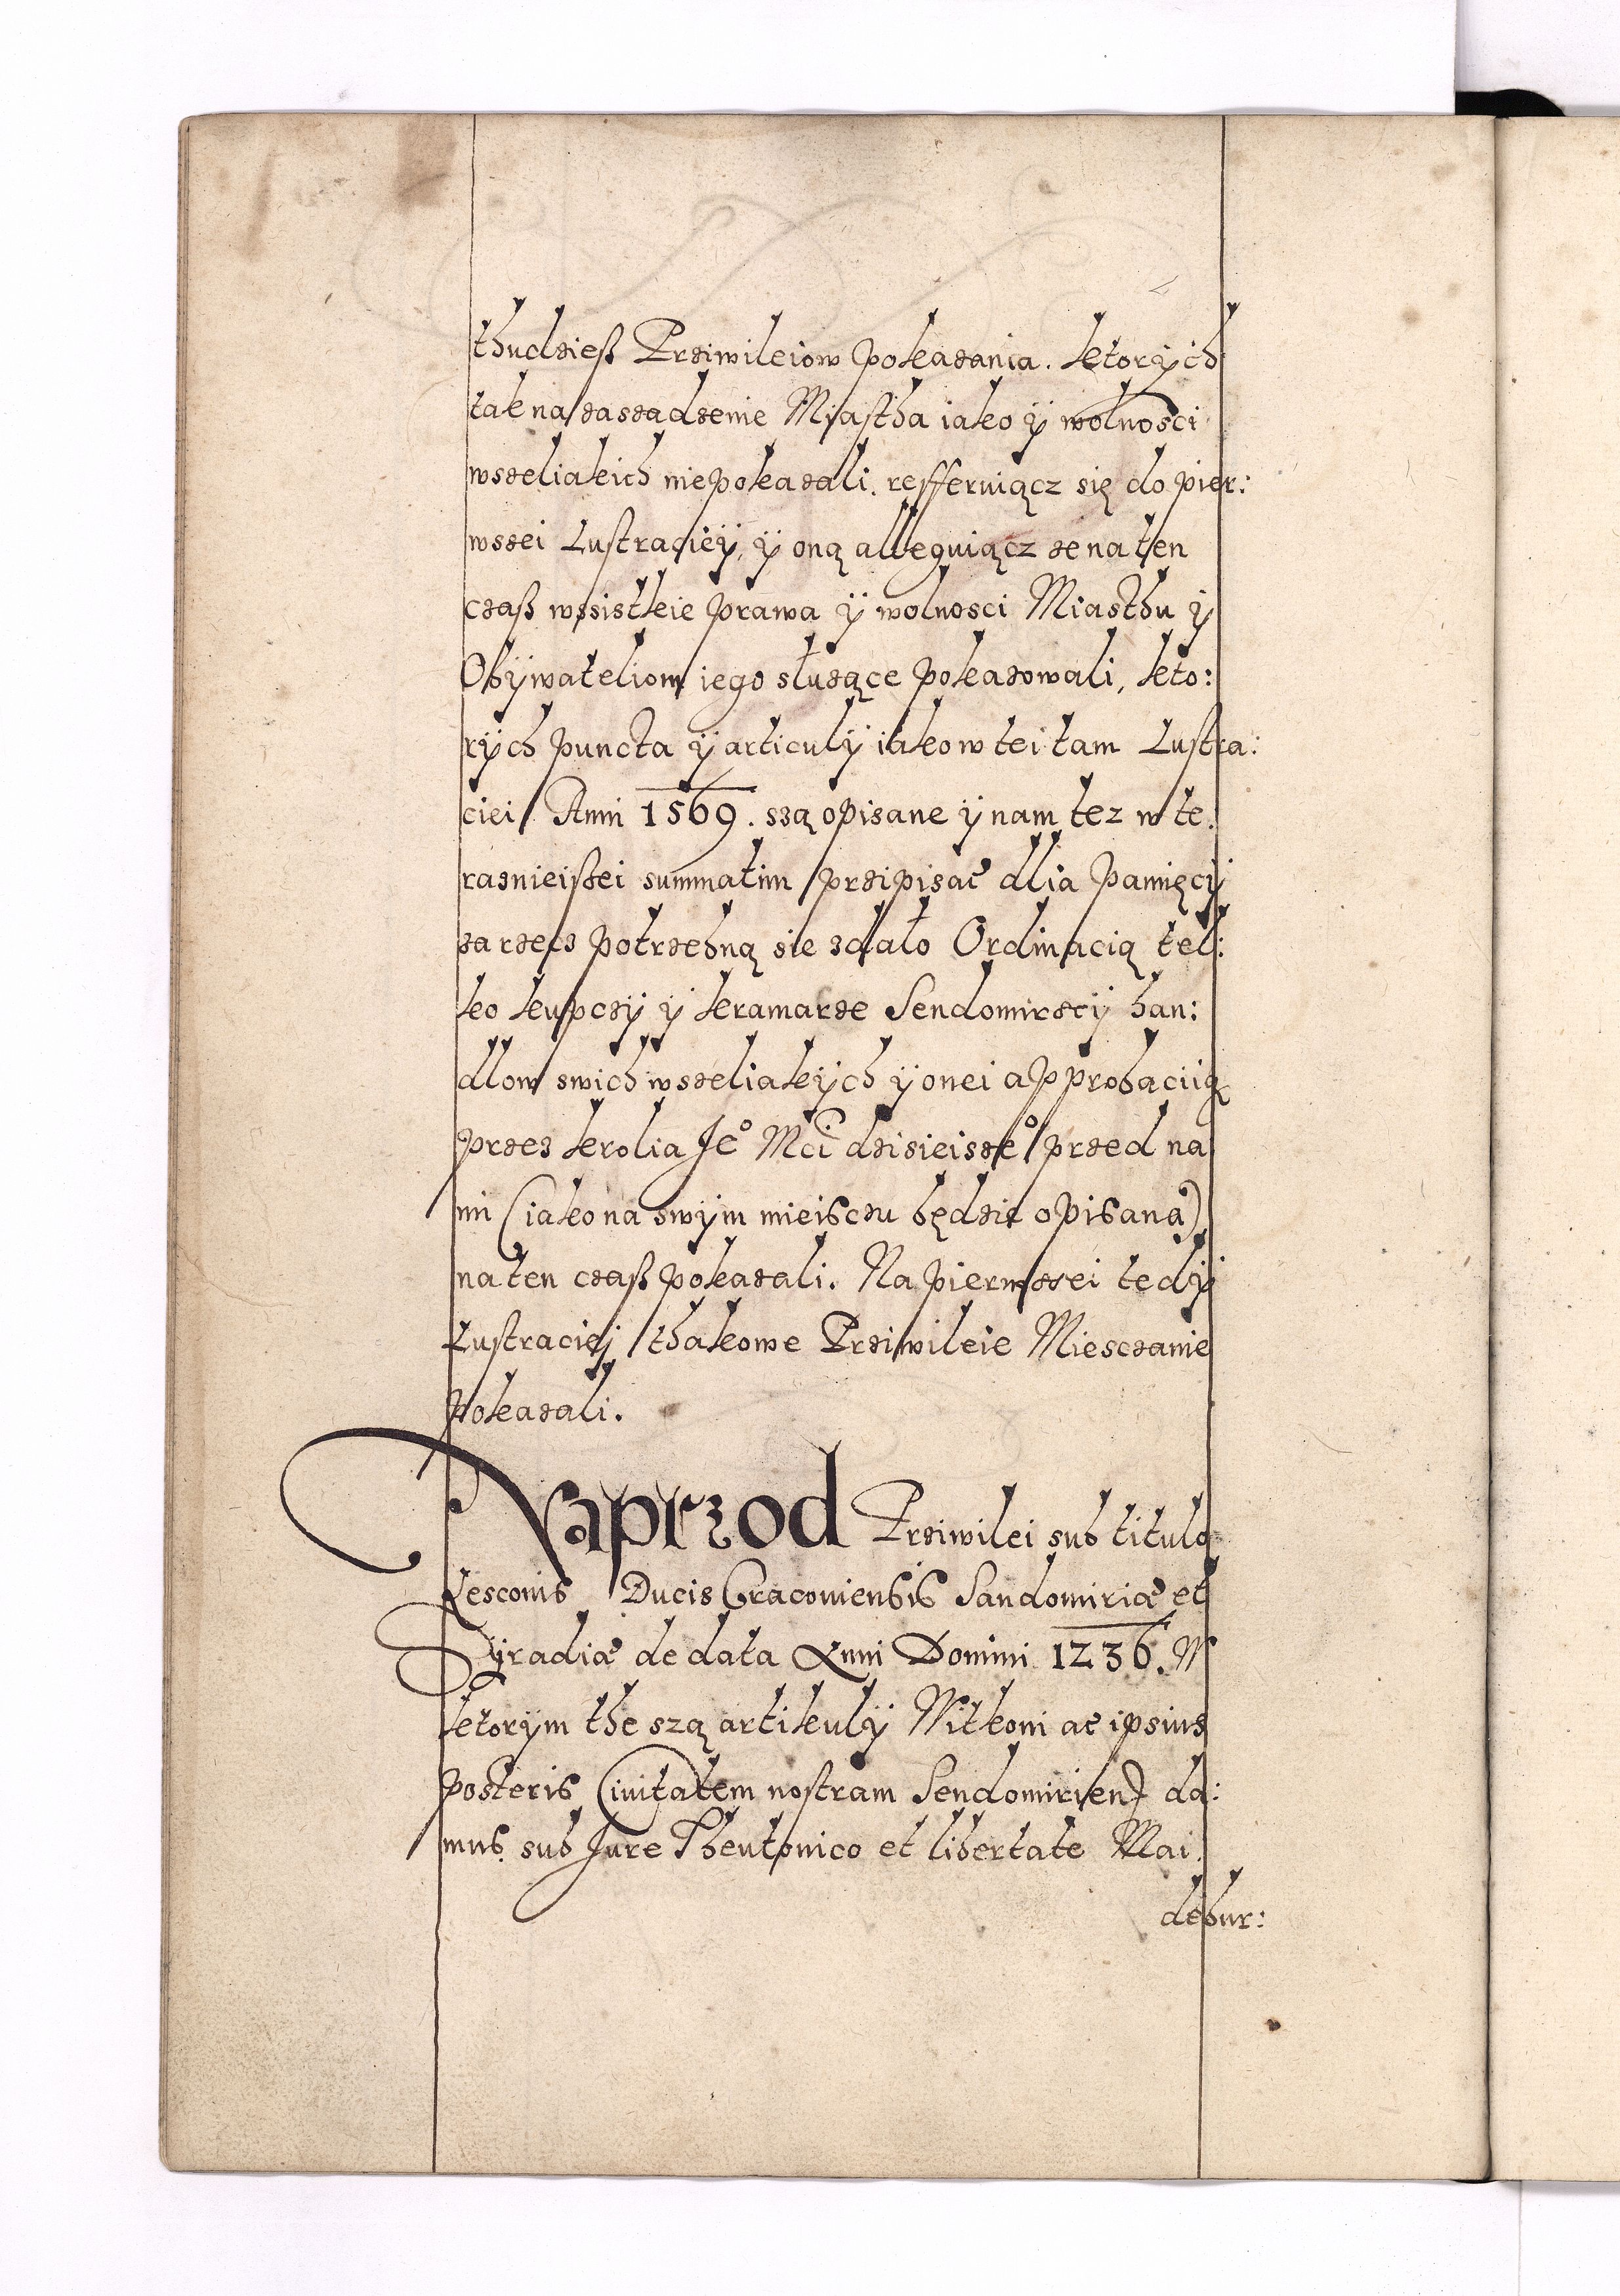 thudzieß Prziwileiow pokazania. ktorÿch
tak na zasadzenie Miastha iako ÿ wolnosci
wszeliakich nie pokazali. refferuiącz się do pier:
wszei Lustraciëÿ, ÿ oną alleguiącz ze na ten
czaß wssistkie prawa ÿ wolnosci Miasthu ÿ
Obÿwateliom iego słuzące pokazowali, kto:
rÿch puncta ÿ articulÿ iako w tei tam Lustra:
ciei Anni 1569. szą opisane ÿ nam tez w te:
raznieißei summatim przipisac dlia pamięcÿ
za rzecz potrzebną sie zdało Ordinacią tel:
ko kupczÿ ÿ kramarze Sendomirscÿ han:
dlow swich wszeliakÿch ÿ onei approbaciią
przez krolia Je° Mci dzisieisze° przed na
mi (iako na swÿm mieisczu będzie opisana)
na ten czaß pokazali. Na pierwszei tedÿ
Lustraciej thakowe Prziwileie Miesczanie
pokazali.
Naprzod Prziwilei sub titulo
Lesconis Ducis Cracouiensis Sandomiriæ et
Sÿradiæ de data Anni Domini 1236. W
ktorÿm the szą artikulÿ Witkoni ac ipsius
posteris Ciuitatem nostram Sendomirien) da:
mus sub Jure Theutonico et libertate Mai:
debur: